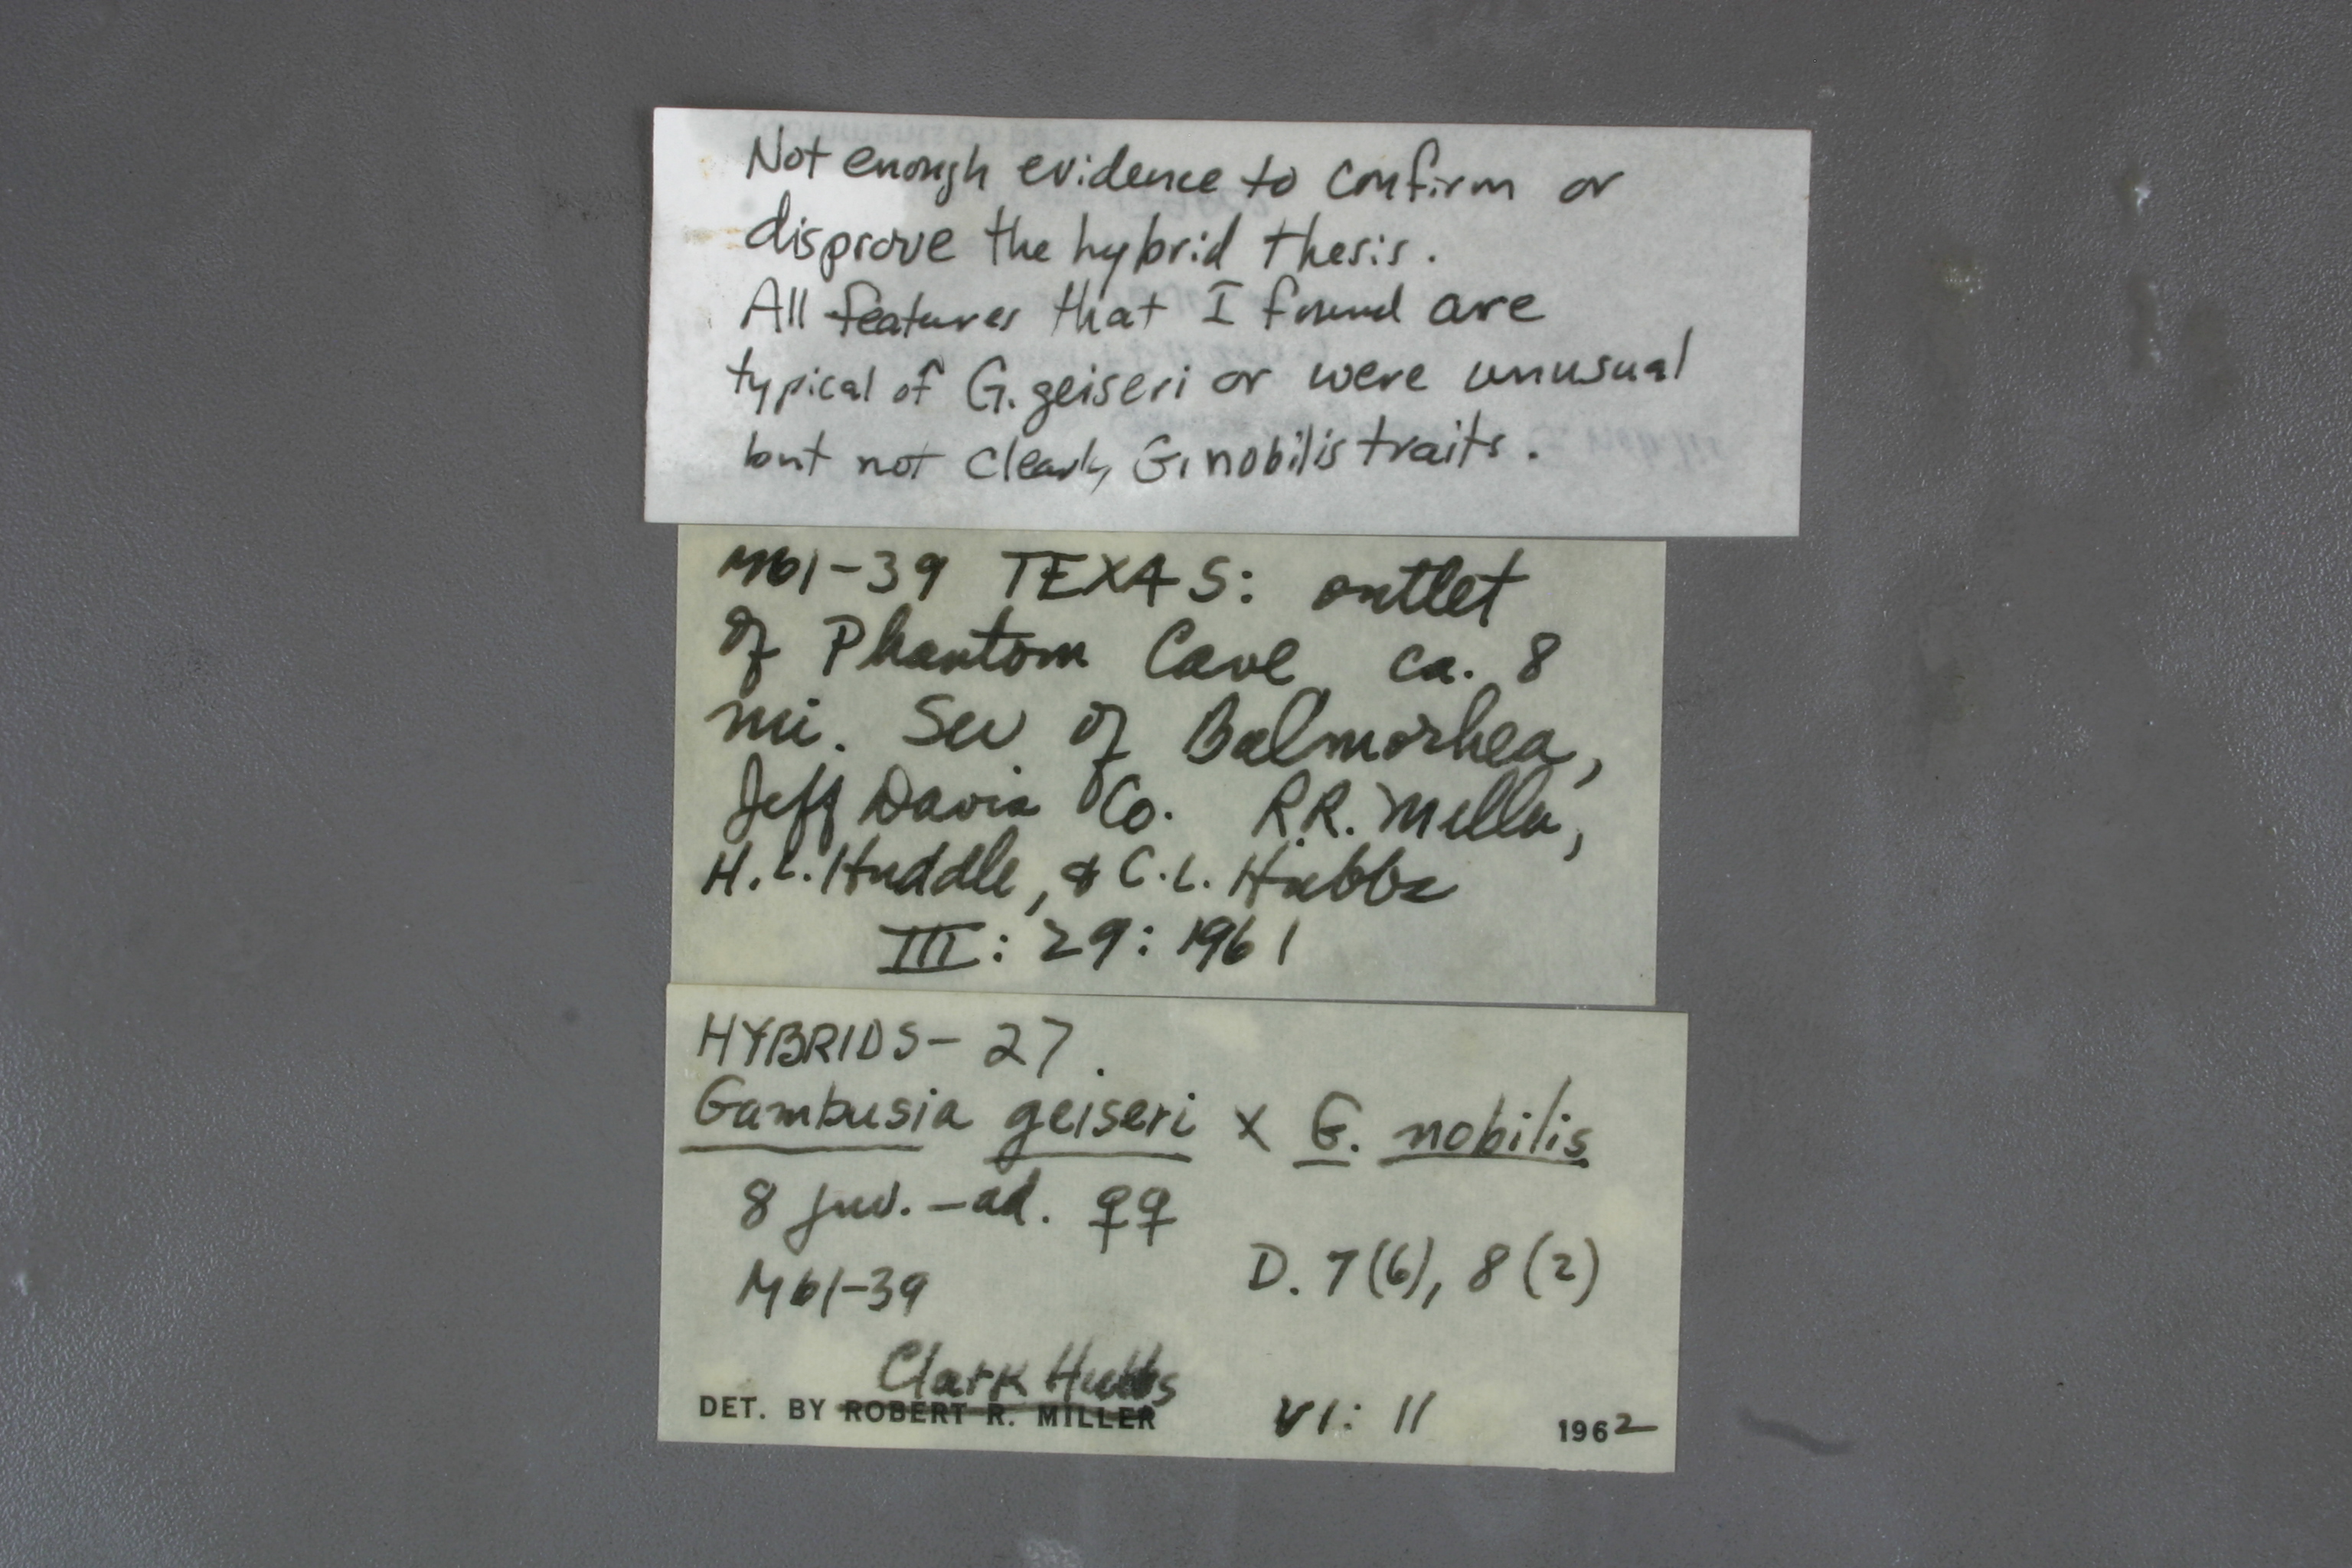 Not enough evidence to confirm or
disprove the hybrid thesis.
All features that I found are
typical of G. geiseri or were unusual
but not clearly G. nobilis traits.
M61-39 TEXAS: outlet
of Phantom Cave ca. 8
mi. SW of Balmorhea,
Jeff Davis Co. R.R. Miller,
H.L. Huddle, & C.L. Hubbs
III: 29: 1961
HYBRIDS- 27.
Gambusia geiseri x G. nobilis
8 juv. - ad. ♀♀
M61-39 D. 7(6), 8(2)
Clark Hubbs
DET. BY ROBERT R. MILLER VI: 11 1962